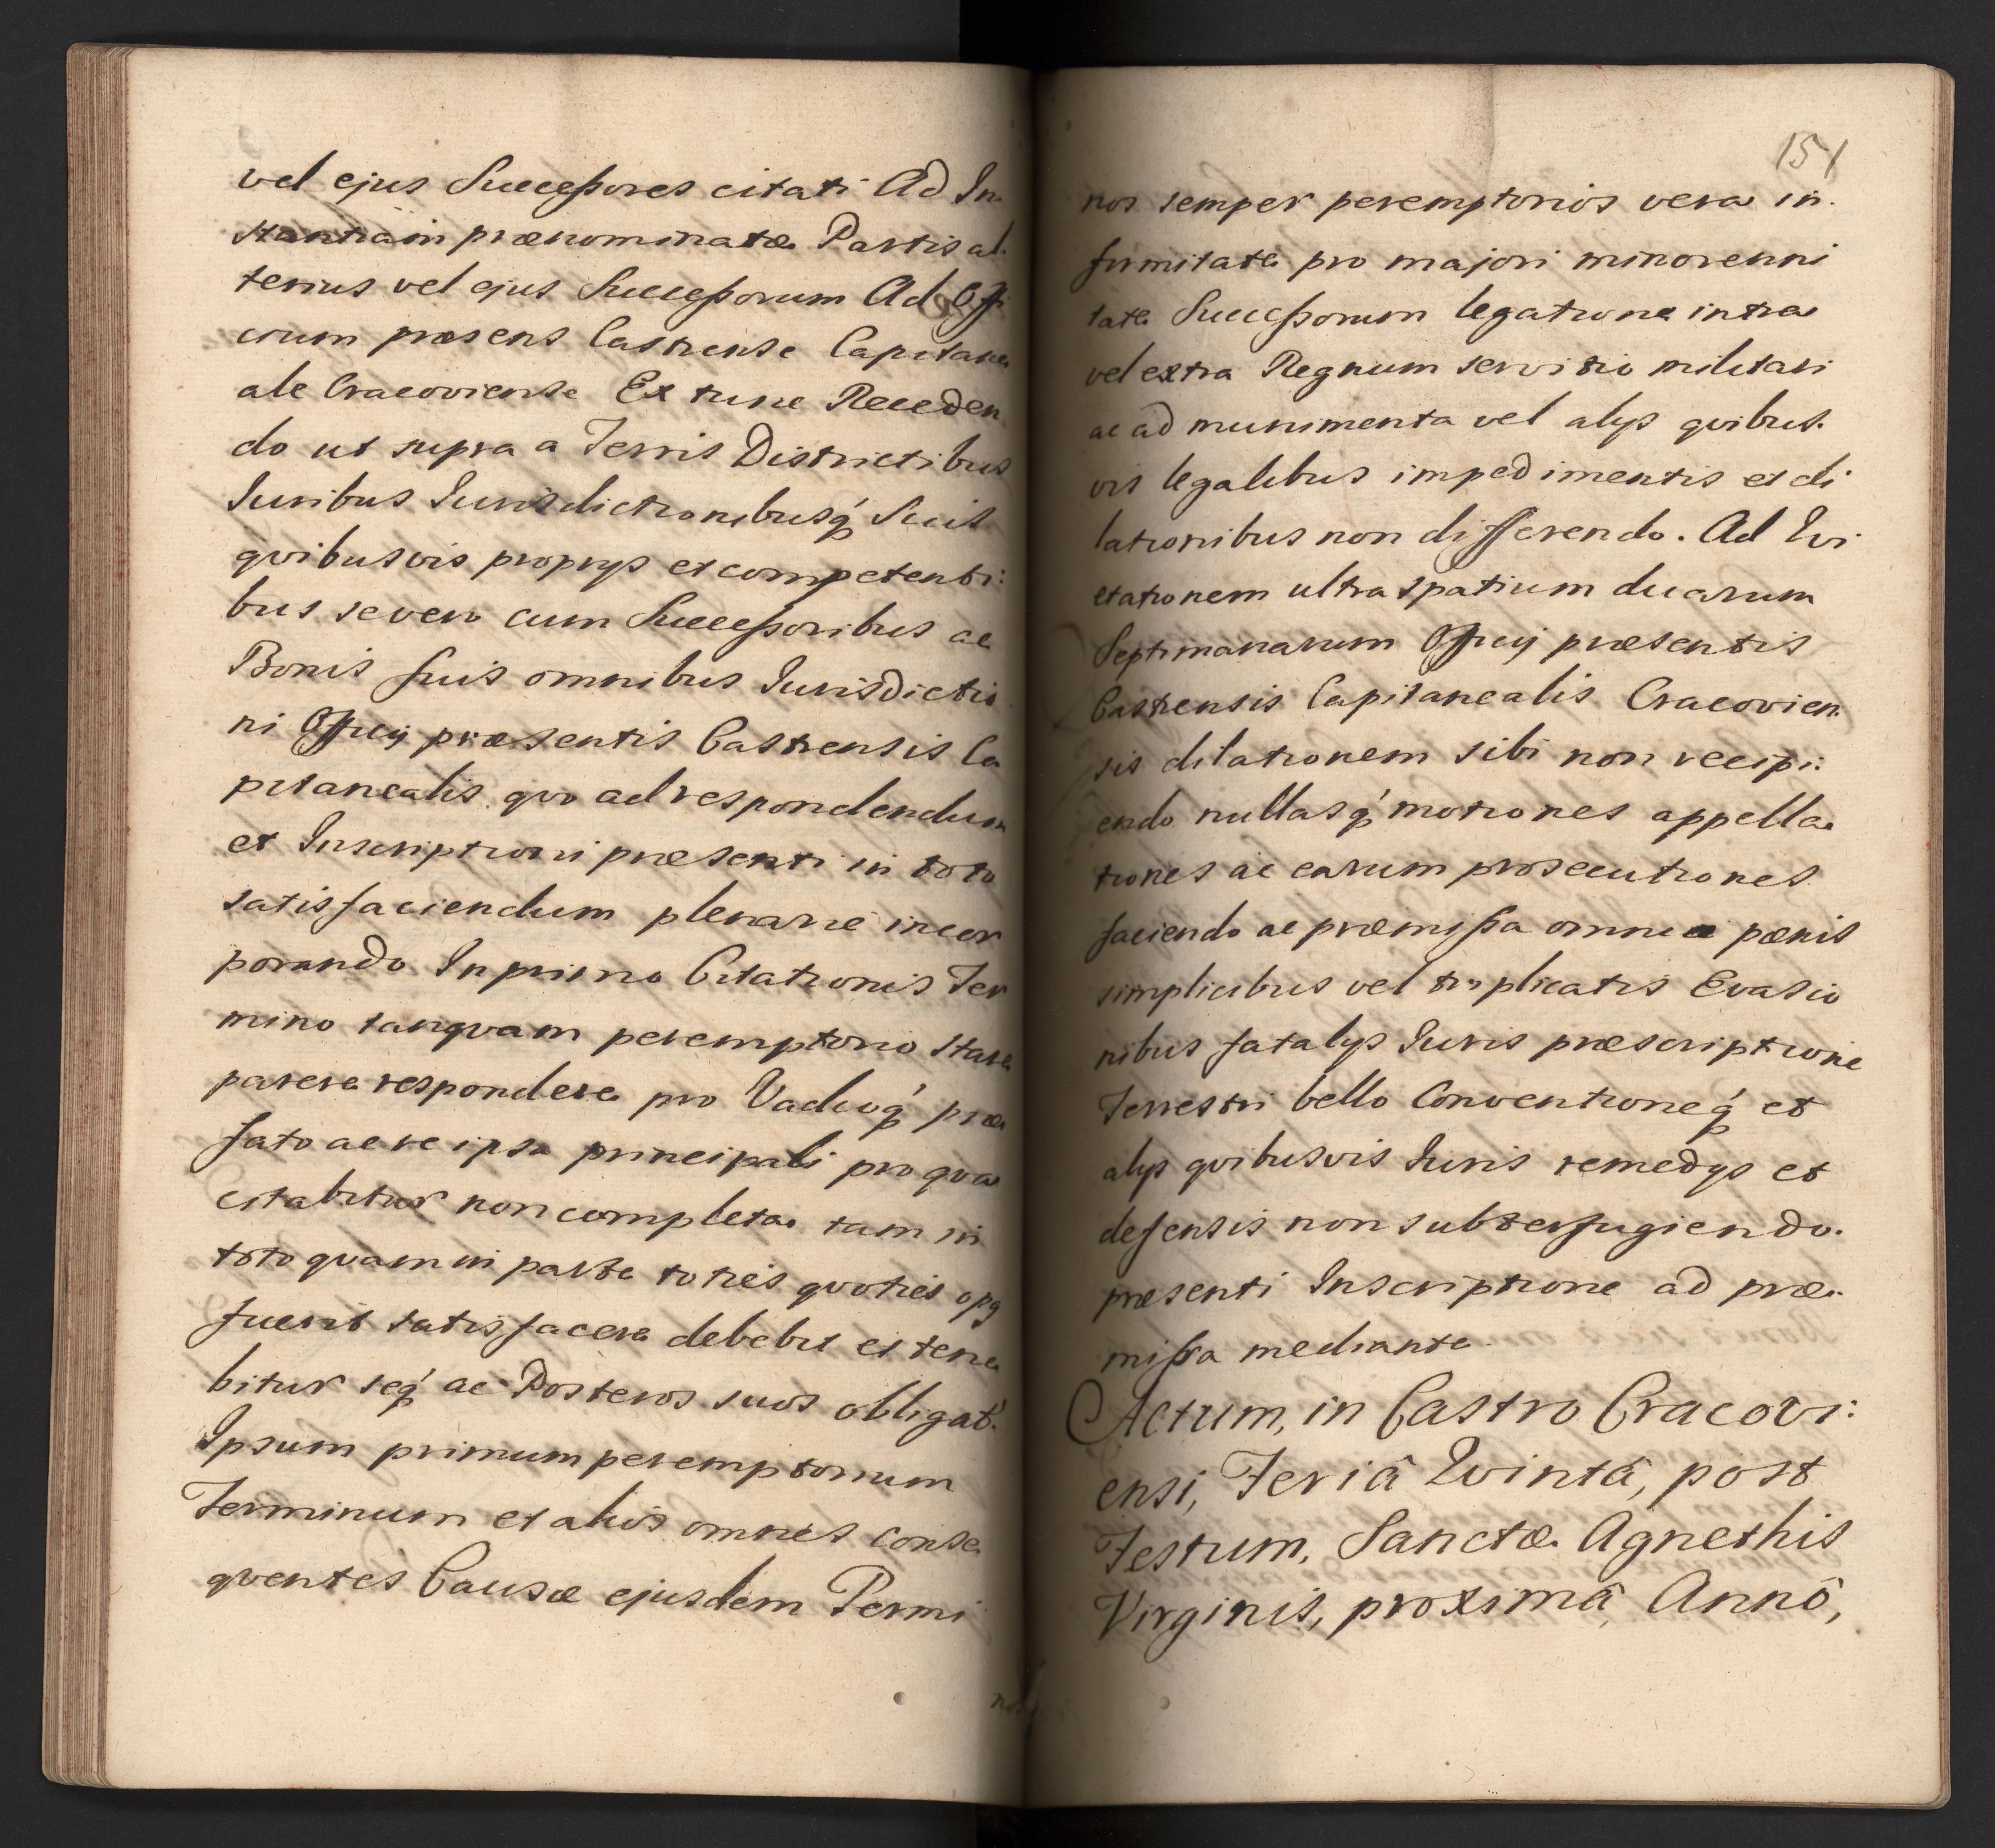 vel ejus Successores citati Ad In
stantiam prænominatæ Partis al.
terius vel ejus Successorum Ad Offi
cium præsens Castrense Capitane
ale Cracoviense Ex tunc Receden
do ut supra a Terris Districtibus
Iuribus Iurisdictionibusq́ Suis
qvibusvis proprys et competenti:
bus se vero cum Successoribus ac
Bonis suis omnibus Iurisdictio
ni Officij præsentis Castrensis Ca
pitanealis qvo ad respondendum
et Inscriptioni præsenti in toto
satisfaciendum plenarie incor
porando In primo Citationis Ter
mino tanqvam peremptorio stare
parere respondere pro Vadioq́ præ
fato ac re ipsa principali pro qva
citabitur non completa tam in
toto qvam in parte toties qvoties opq
fuerit satisfacere debebit et tene
bitur seq́ ac Posteros suos obligat.
Ipsum primum peremptorium
Terminum et alios omnes conse
qventes Causæ ejusdem Termi
nos
151
nos semper peremptorios vera in.
firmitate pro majori minorenni
tate Successorum legatione intra
vel extra Regnum servitio militari
ac ad munimenta vel alys qvibus.
vis legalibus impedimentis et di
lationibus non differendo. Ad Qvi
etationem ultra spatium duarum
Septimanarum Officij præsentis
Castrensis Capitanealis Cracovien.
sis dilationem sibi non recipi:
endo nullasq́ motiones appella
tiones ac earum prosecutiones
faciendo ac præmissa omnia pænis
simplicibus vel triplicatis Evasio
nibus fatalys Iuris præscriptione
Terrestri bello Conventioneq́ et
alys qvibusvis Iuris remedys et
defensis non subterfugiendo.
præsenti Inscriptione ad præ.
missa mediante.
Actum, in Castro Cracovi:
ensi, Feriâ Qvintâ, post
Festum, Sanctæ Agnethis
Virginis, proximâ Annô,